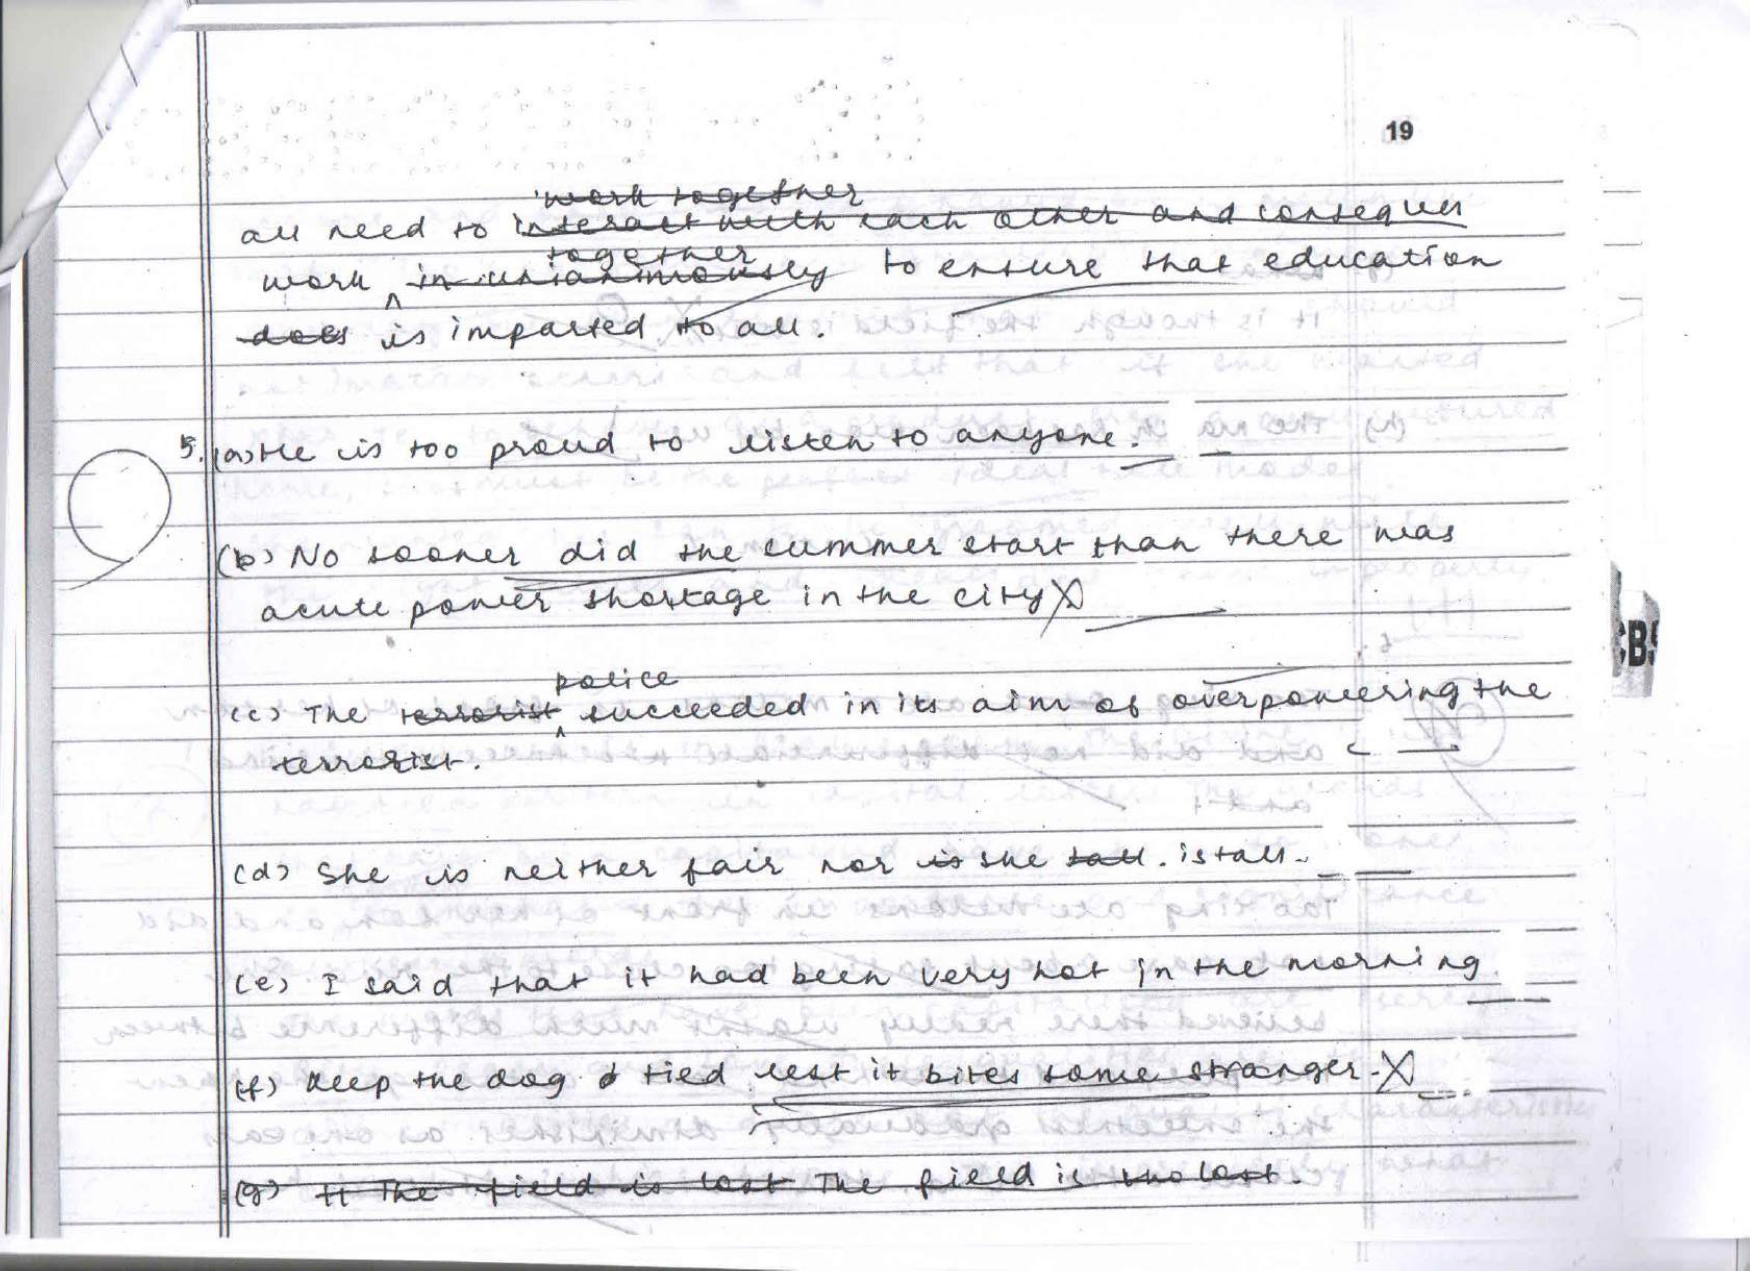 19
work together
all need to interact with each other and consequen
together
work in unianimously to ensure that education
does is imparted to all.
5. (a) He is too proud to listen to anyone.
(b) No sooner did the summer start than there was
acute power shortage in the city
police
(c) The terrorist succeeded in its aim of overpowering the
terrorist.
(d) She is neither fair nor is she tall. is tall.
(e) I said that it had been very hot in the morning.
(f) Keep the dog tied lest it bites some stranger.
(g) It The field is lost The field is lost.
CBS